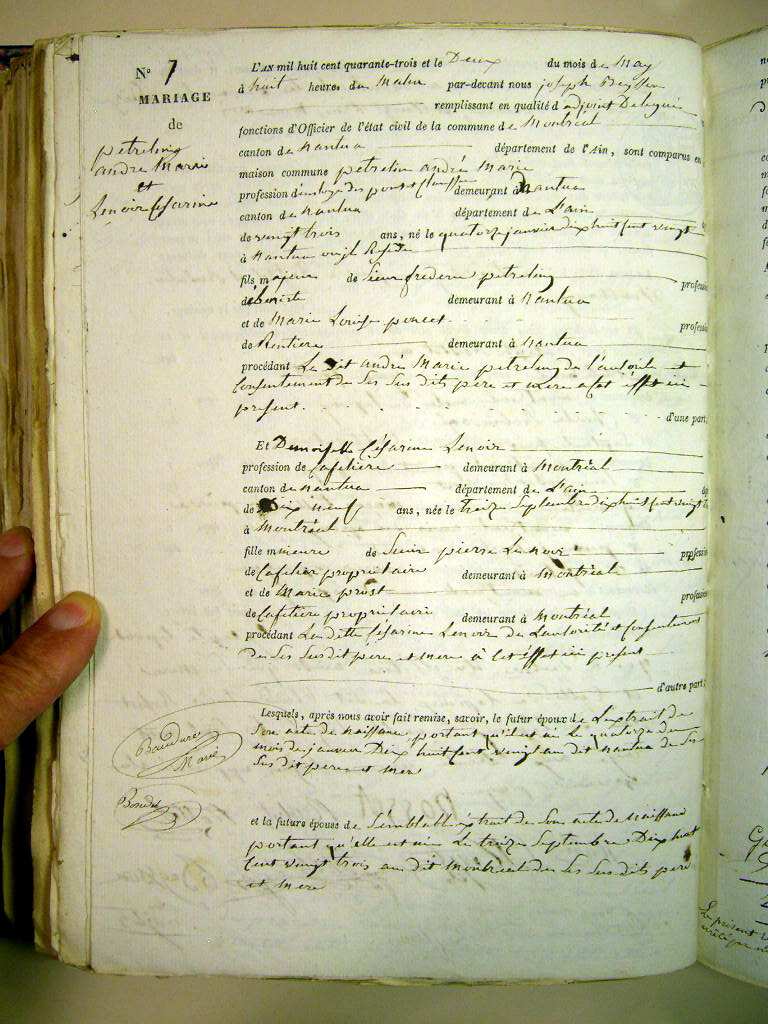 N° 7
MARIAGE
de
petreling
andré Marie
et
Lenoir Césarine
L'AN mil huit cent quarante-trois et le Deux du mois de May
à huit heures du Matin par-devant nous joseph
remplissant en qualité d adjoint Delegué
fonctions d'Officier de l'état civil de la commune de Montréal
canton de nantua département de l'Ain, sont comparus en
maison commune petreling andré Marie
profession d demeurant à Nantua
canton de nantua département de L'ain
de vingt trois ans, né le quatorze janvier dix huit cent vingt
à Nantua
fils majeur de Sieur frederic petreling profession
d'ébeniste demeurant à nantua
et de Marie Louise poncet profession
de Rentiere demeurant à nantua
procédant Le dit andré Marie petreling de l'autorité et
Consentement de Ses Sus dits pere et mere a cet effet ici
présent. d'une part
Et Demoiselle Césarine Lenoir
profession de Cafetiere demeurant à Montréal
canton de nantua département de L'ain
de Dix neuf ans, née le treize Septembre dix huit cent vingt
à Montréal
fille mineure de Sieur pierre Lenoir profession
de Cafetier propriétaire demeurant à Montréal
et de Marie prost profession
de Cafetiere propriétaire demeurant à Montréal
procédant La dite Césarine Lenoir de L'autorité et Consentement
de Ses Sus dit pere et mere à Cet effet ici présent
d'autre part;
Lesquels, après nous avoir fait remise, savoir, le futur époux de L'extrait de
Son acte de naissance, portant qu'il est né Le quatorze du
mois de janvier Dix huit Cent vingt au dit nantua de Ses
Sus dit pere et mere
Marie
et la future épouse de Semblable extrait de Son acte de naissance
portant qu'elle est née Le treize Septembre Dix huit
Cent vingt trois au dit Montréal de Ses Sus dits pere
et mere